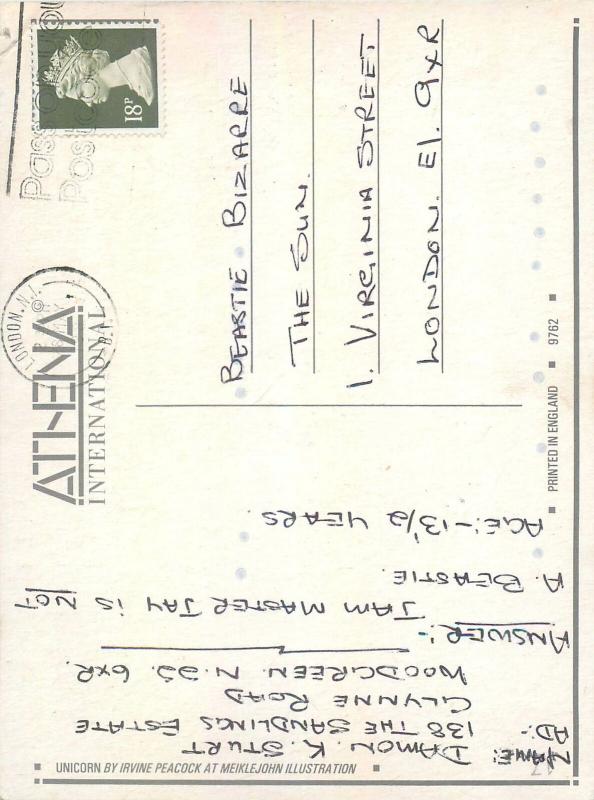 NAME: DAMON. K. STURT
AD:- 138 THE SANDLINGS ESTATE
GLYNNE ROAD
WOODGREEN. N.22. 6XR.
ANSWER:- JAM MASTER JAY IS NOT
A. BEASTIE.
AGE:- 13 1/2 YEARS
ATHENA
INTERNATIONAL
©
LONDON.N.1.
18P
BEASTIE BIZARRE
THE SUN.
1. VIRGINIA STREET
LONDON. E1. 9XR
UNICORN BY IRVINE PEACOCK AT MEIKLEJOHN ILLUSTRATION
PRINTED IN ENGLAND
9762